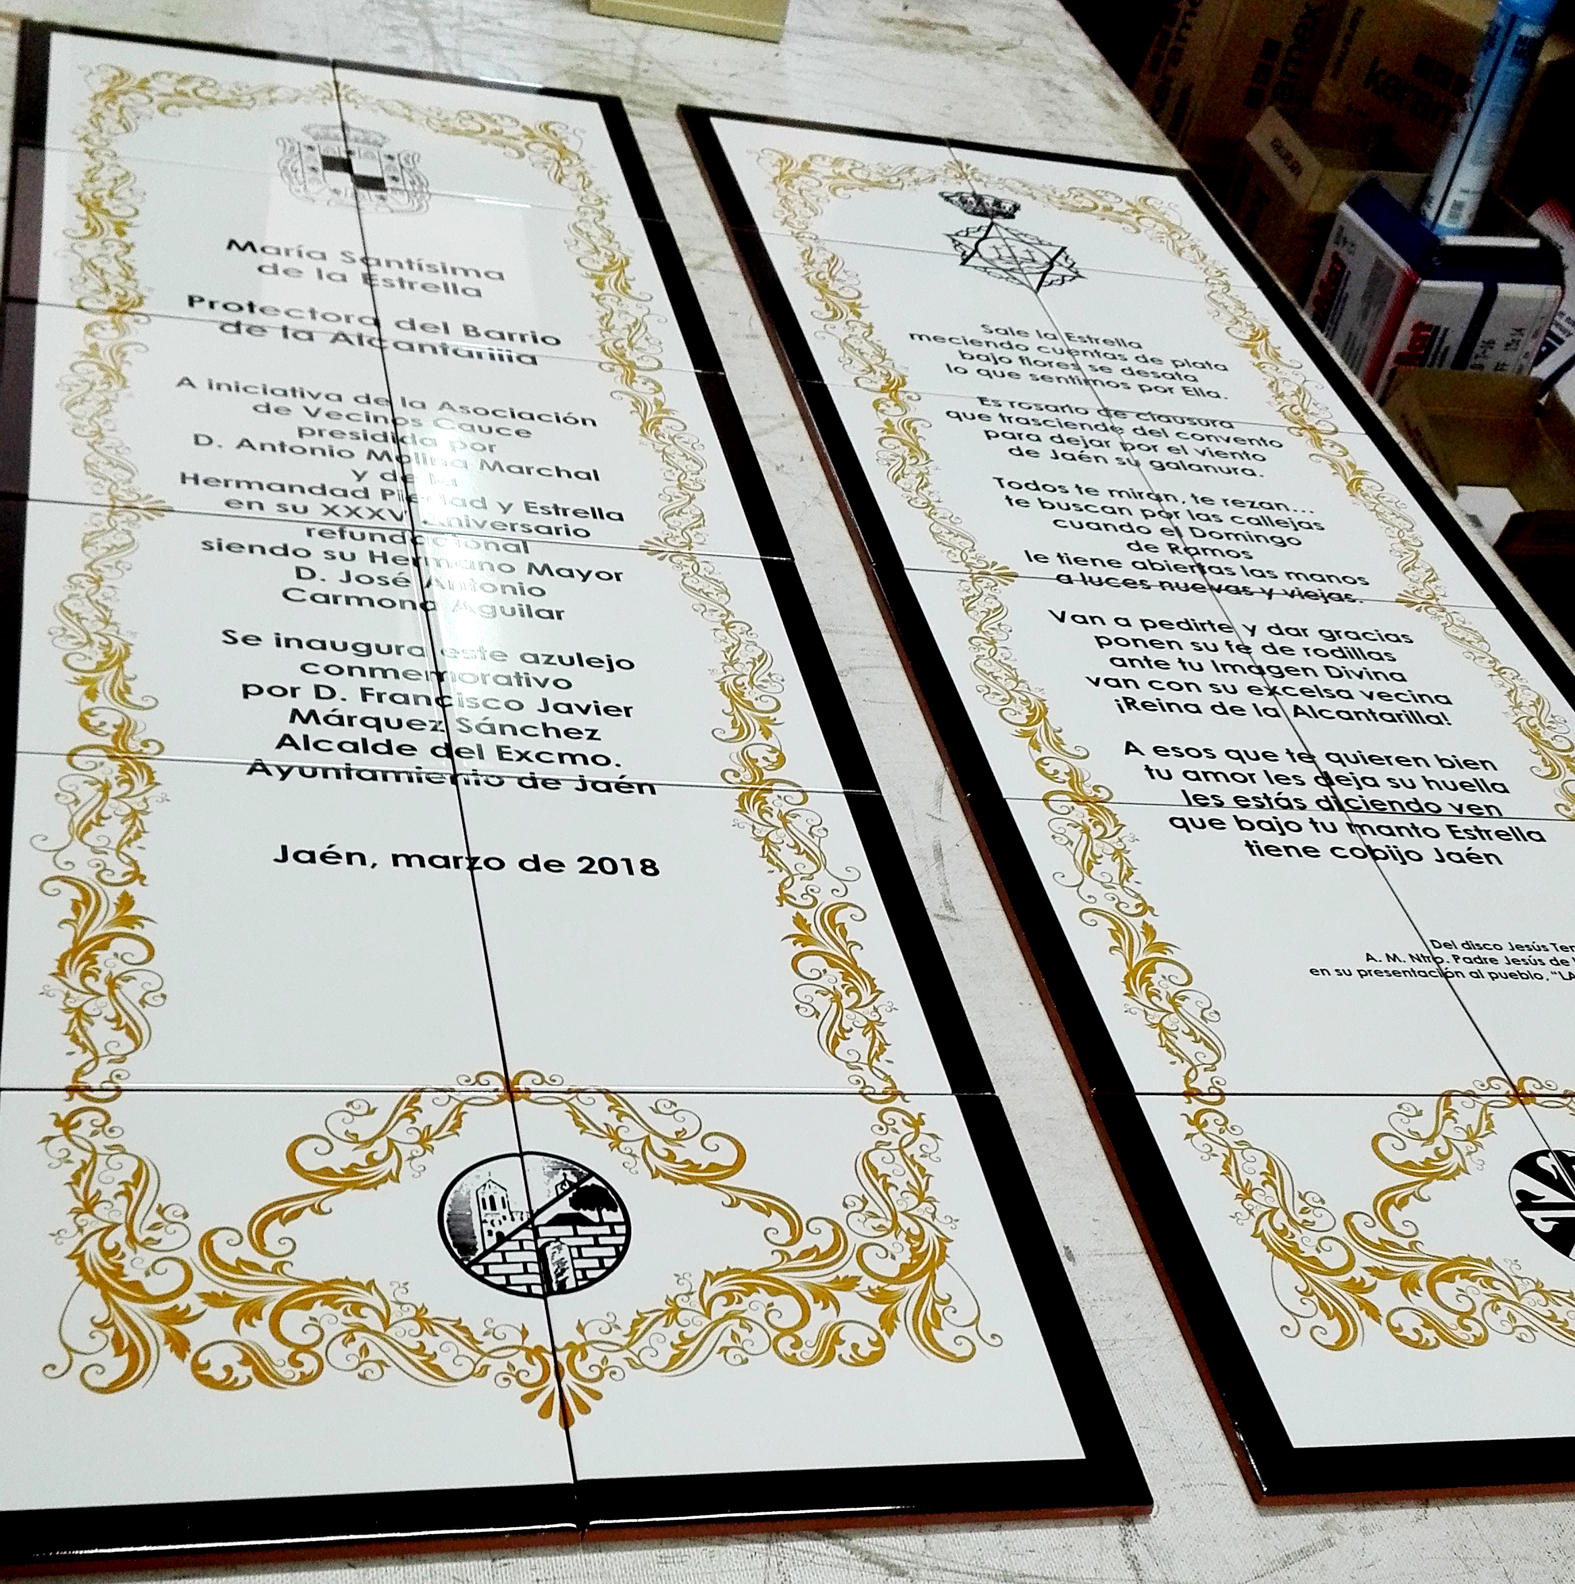 María Santísima
de la Estrella
Protectora del Barrio
de la Alcantarilla
A iniciativa de la Asociación
de Vecinos Cauce
presidida por
D. Antonio Molina Marchal
y de la
Hermandad Piedad y Estrella
en su XXXV Aniversario
refundacional
siendo su Hermano Mayor
D. José Antonio
Carmona Aguilar
Se inaugura este azulejo
conmemorativo
por D. Francisco Javier
Márquez Sánchez
Alcalde del Excmo.
Ayuntamiento de Jaén
Jaén, marzo de 2018
Sale la Estrella
meciendo cuentas de plata
bajo flores se desata
lo que sentimos por Ella.
Es rosario de clausura
que trasciende del convento
para dejar por el viento
de Jaén su galanura.
Todos te miran, te rezan...
te buscan por las callejas
cuando el Domingo
de Ramos
le tiene abiertas las manos
a luces nuevas y viejas.
Van a pedirte y dar gracias
ponen su fe de rodillas
ante tu Imagen Divina
van con su excelsa vecina
¡Reina de la Alcantarilla!
A esos que te quieren bien
tu amor les deja su huella
les estás diciendo ven
que bajo tu manto Estrella
tiene cobijo Jaén
Del disco Jesús
A. M. Ntro. Padre Jesús de
en su presentación al pueblo, "LA